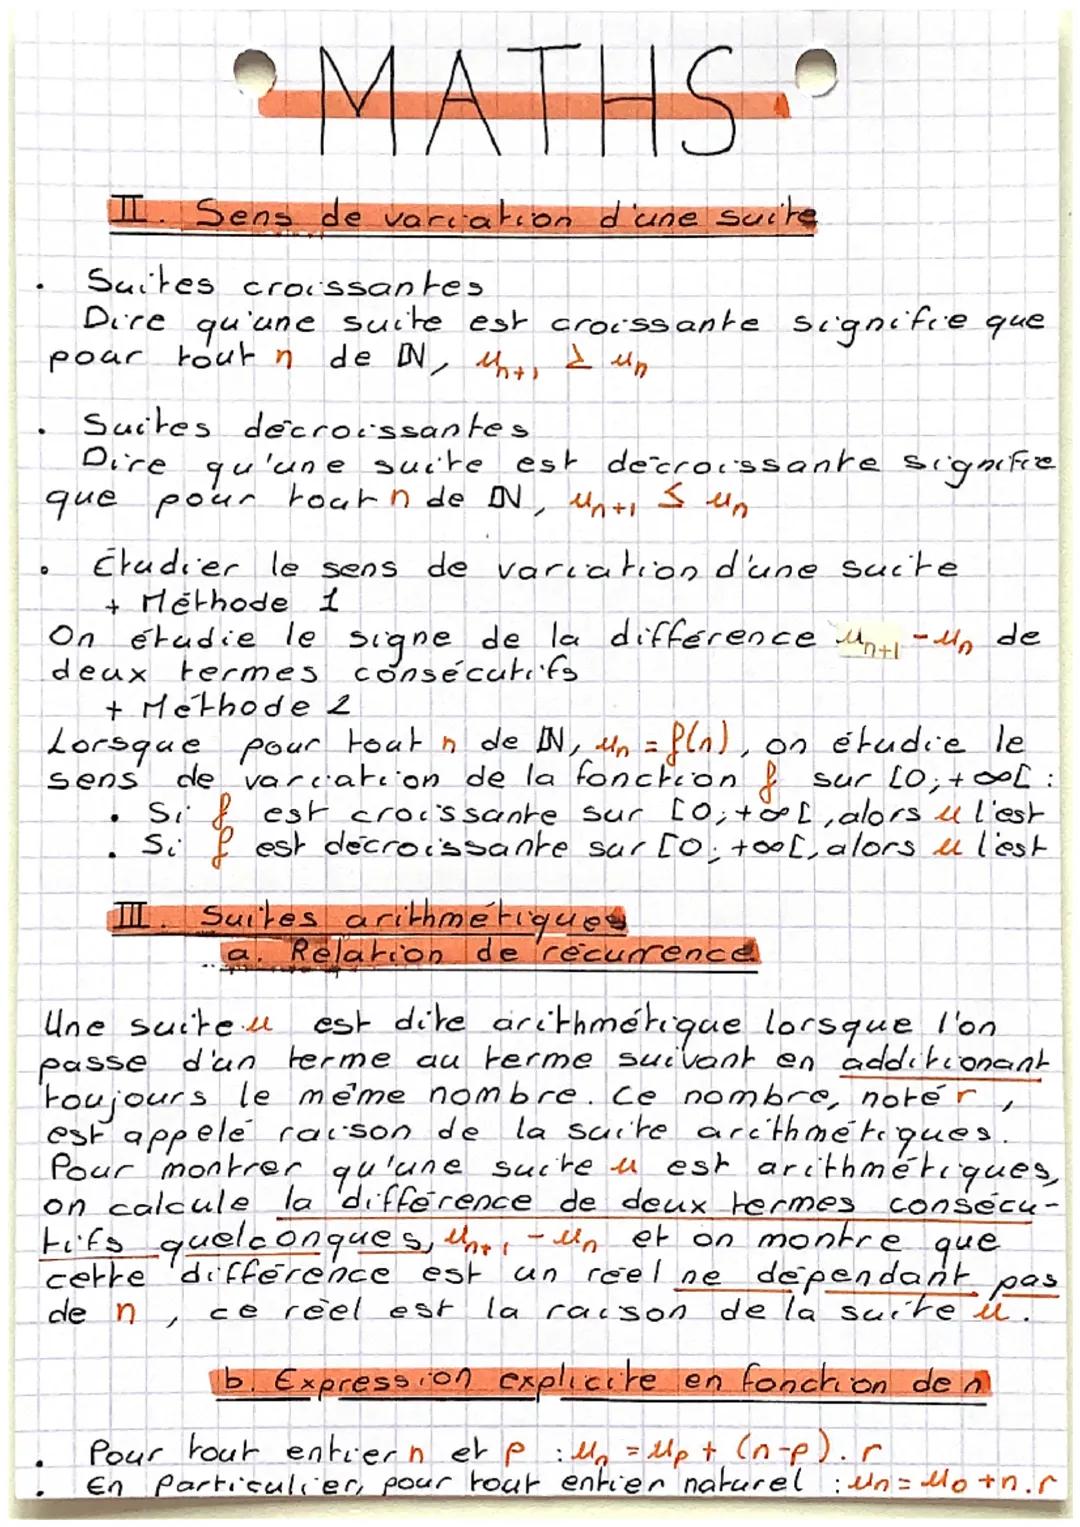 MATHS
II. Sens de variation d'une suite
• Suites croissantes
Dire qu'une suite est croissante signifie que
pour tout n de ℕ, uₙ₊₁ ≥ uₙ
• Suites décroissantes
Dire qu'une suite est décroissante signifie
que pour tout n de ℕ, uₙ₊₁ ≤ uₙ
• Étudier le sens de variation d'une suite
+ Méthode 1
On étudie le signe de la différence uₙ₊₁ - uₙ de
deux termes consécutifs
+ Méthode 2
Lorsque pour tout n de ℕ, uₙ = f(n), on étudie le
sens de variation de la fonction f sur [0;+∞[ :
• Si f est croissante sur [0;+∞[, alors u l'est
• Si f est décroissante sur [0;+∞[, alors u l'est
III. Suites arithmétiques
a. Relation de récurrence
Une suite u est dite arithmétique lorsque l'on
passe d'un terme au terme suivant en additionant
toujours le même nombre. Ce nombre, noté r,
est appelé raison de la suite arithmétiques.
Pour montrer qu'une suite u est arithmétiques,
on calcule la différence de deux termes consécu-
tifs quelconques, uₙ₊₁ - uₙ et on montre que
cette différence est un réel ne dépendant pas
de n, ce réel est la raison de la suite u.
b. Expression explicite en fonction de n
• Pour tout entier n et p : uₙ = uₚ + (n-p).r
• En particulier, pour tout entier naturel : uₙ = u₀ + n.r